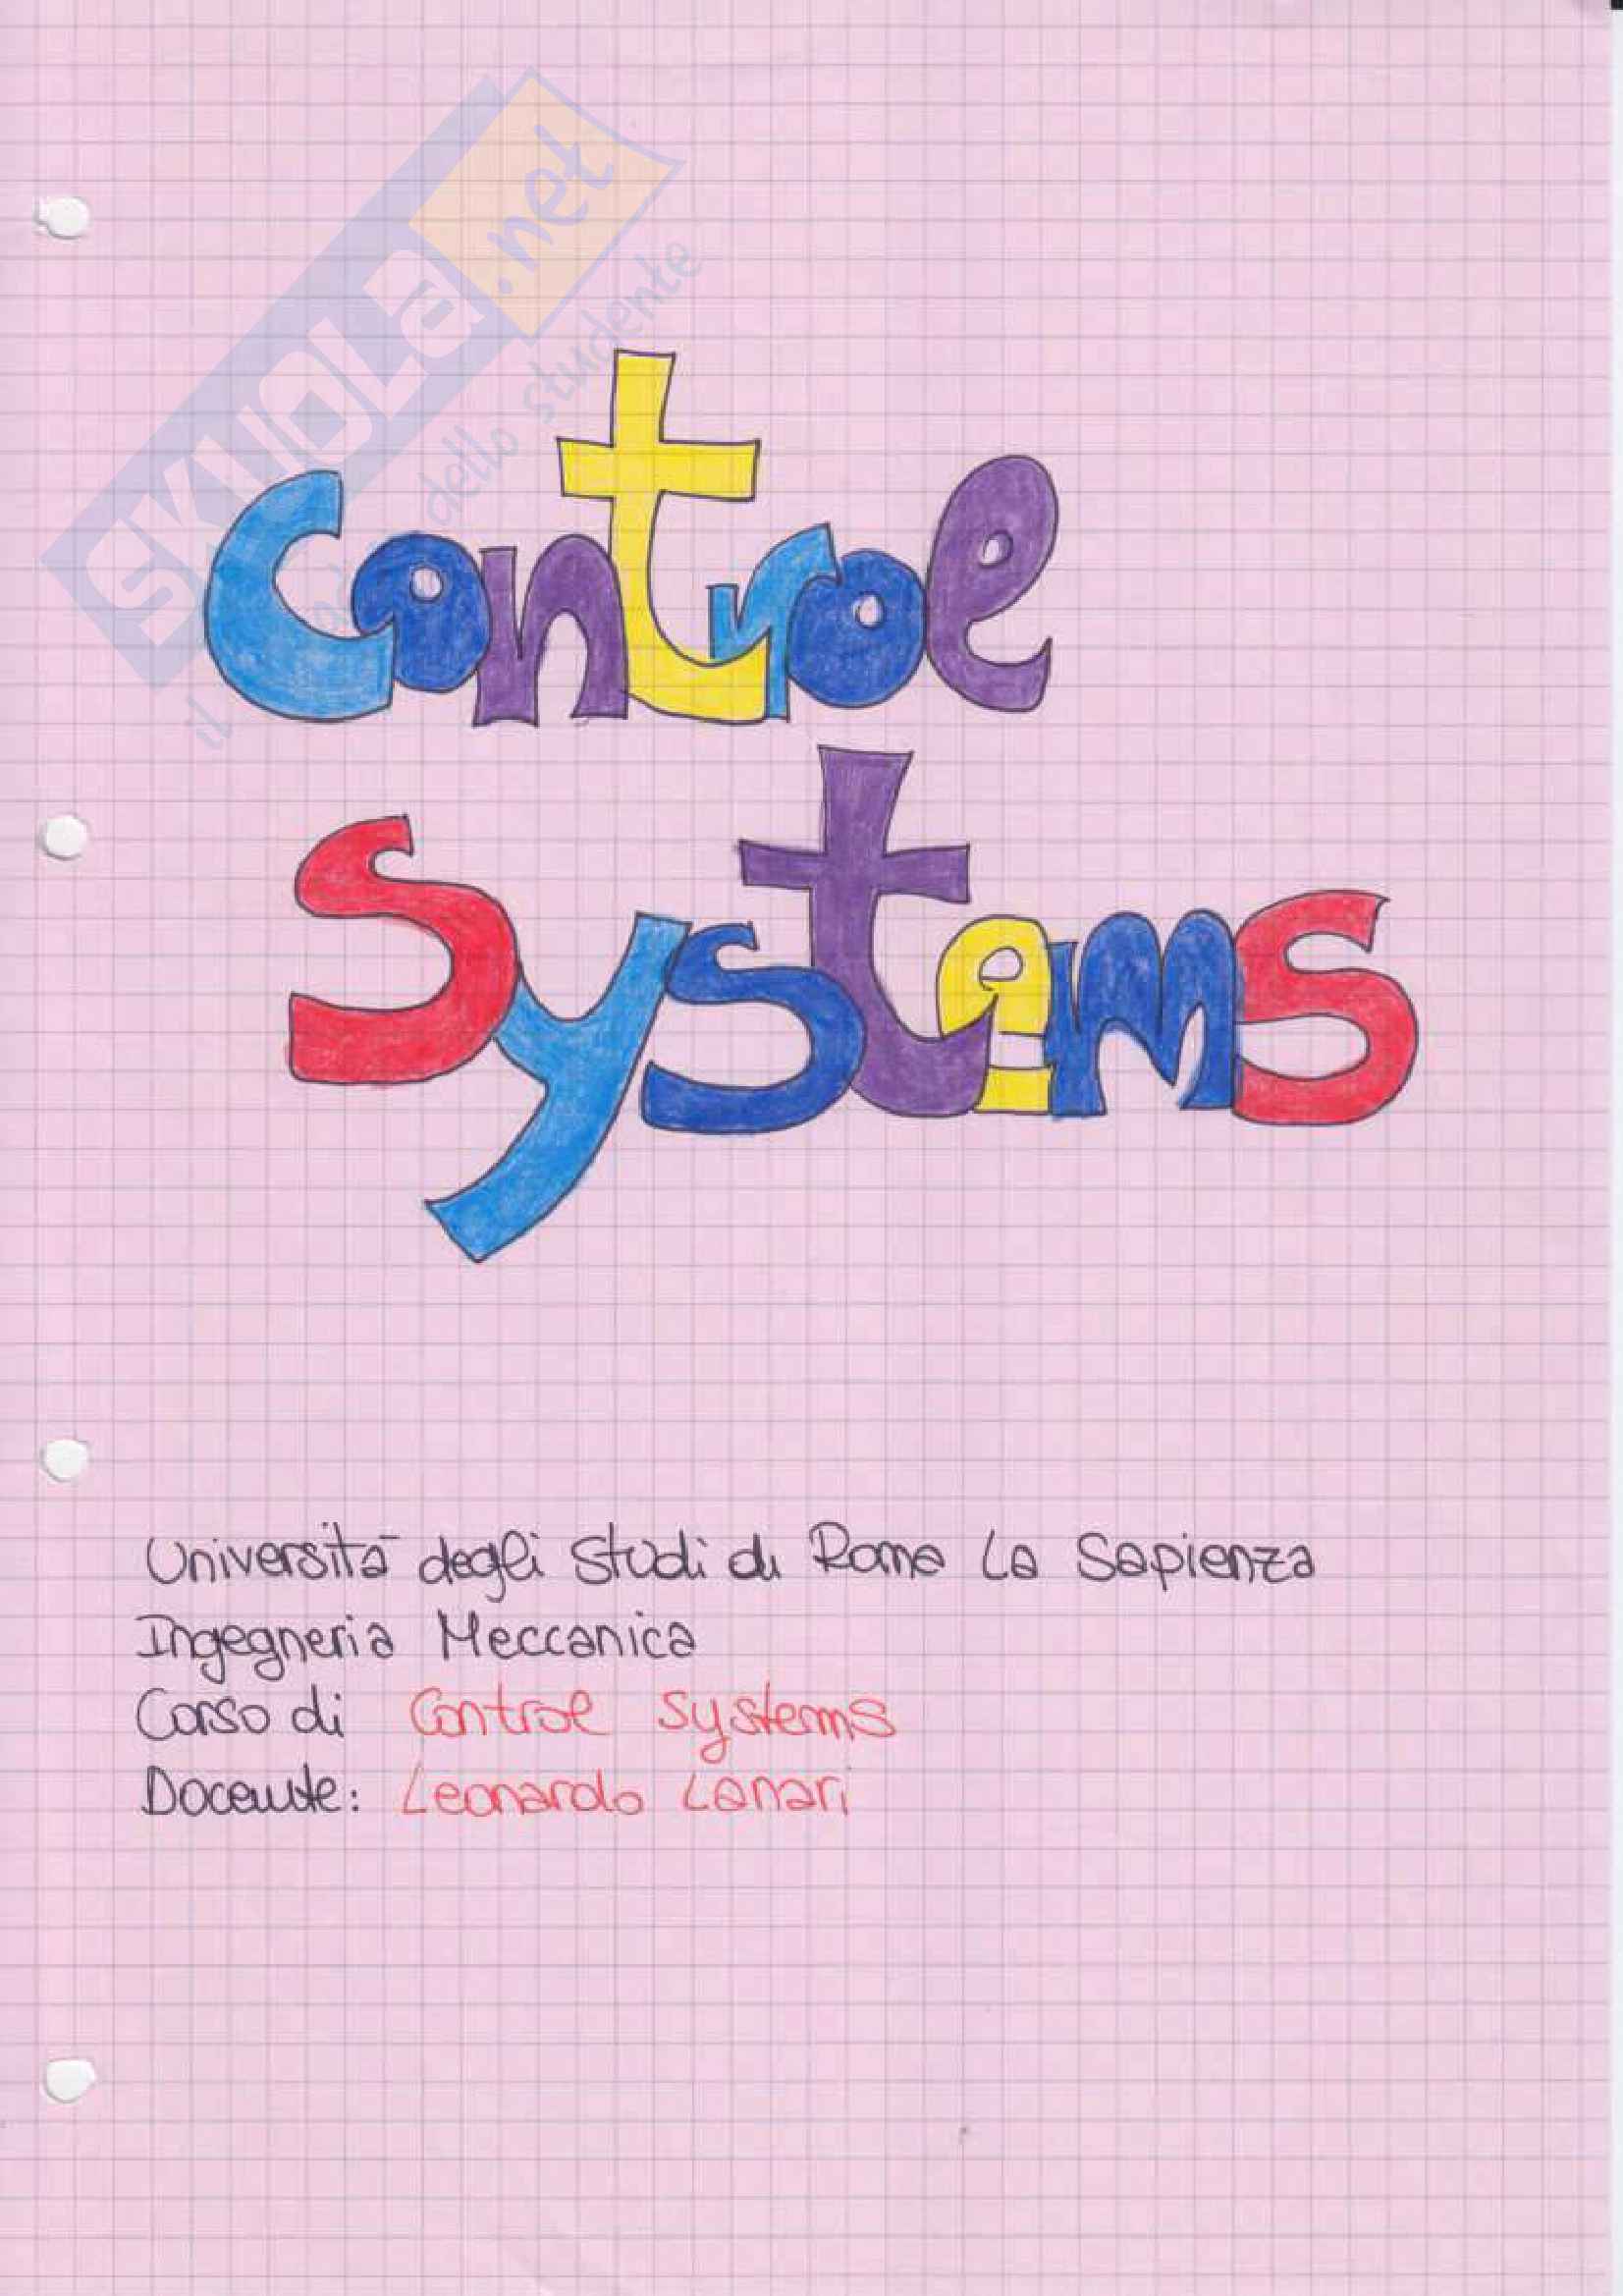 SKUOLA.net
il dello studente
Control
Systems
Università degli Studi di Roma La Sapienza
Ingegneria Meccanica
Corso di Control Systems
Docente: Leonardo Lanari